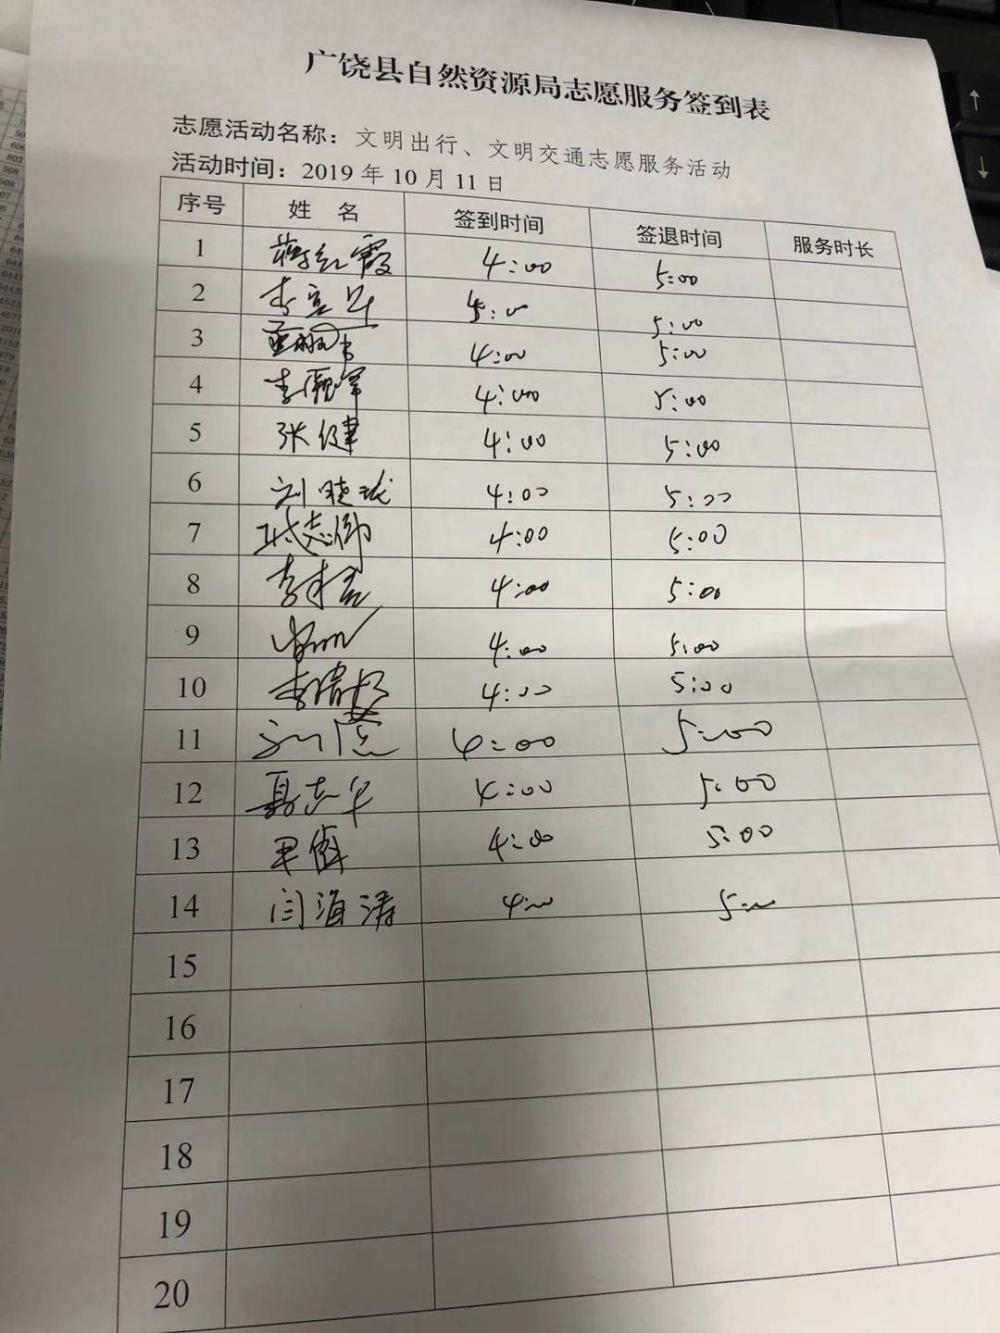 广饶县自然资源局志愿服务签到表
志愿活动名称：文明出行、文明交通志愿服务活动
活动时间：2019 年 10 月 11 日
序号 姓 名 签到时间 签退时间 服务时长
1 蒋红霞 4:00 5:00
2 5:00
3 4:00 5:00
4 4:00 5:00
5 张健 4:00 5:00
6 刘晓成 4:00 5:00
7 4:00 5:00
8 4:00 5:00
9 4:00 5:00
10 4:00 5:00
11 4:00 5:00
12 聂志华 4:00 5:00
13 4:00 5:00
14 闫海涛 4:00 5:00
15
16
17
18
19
20